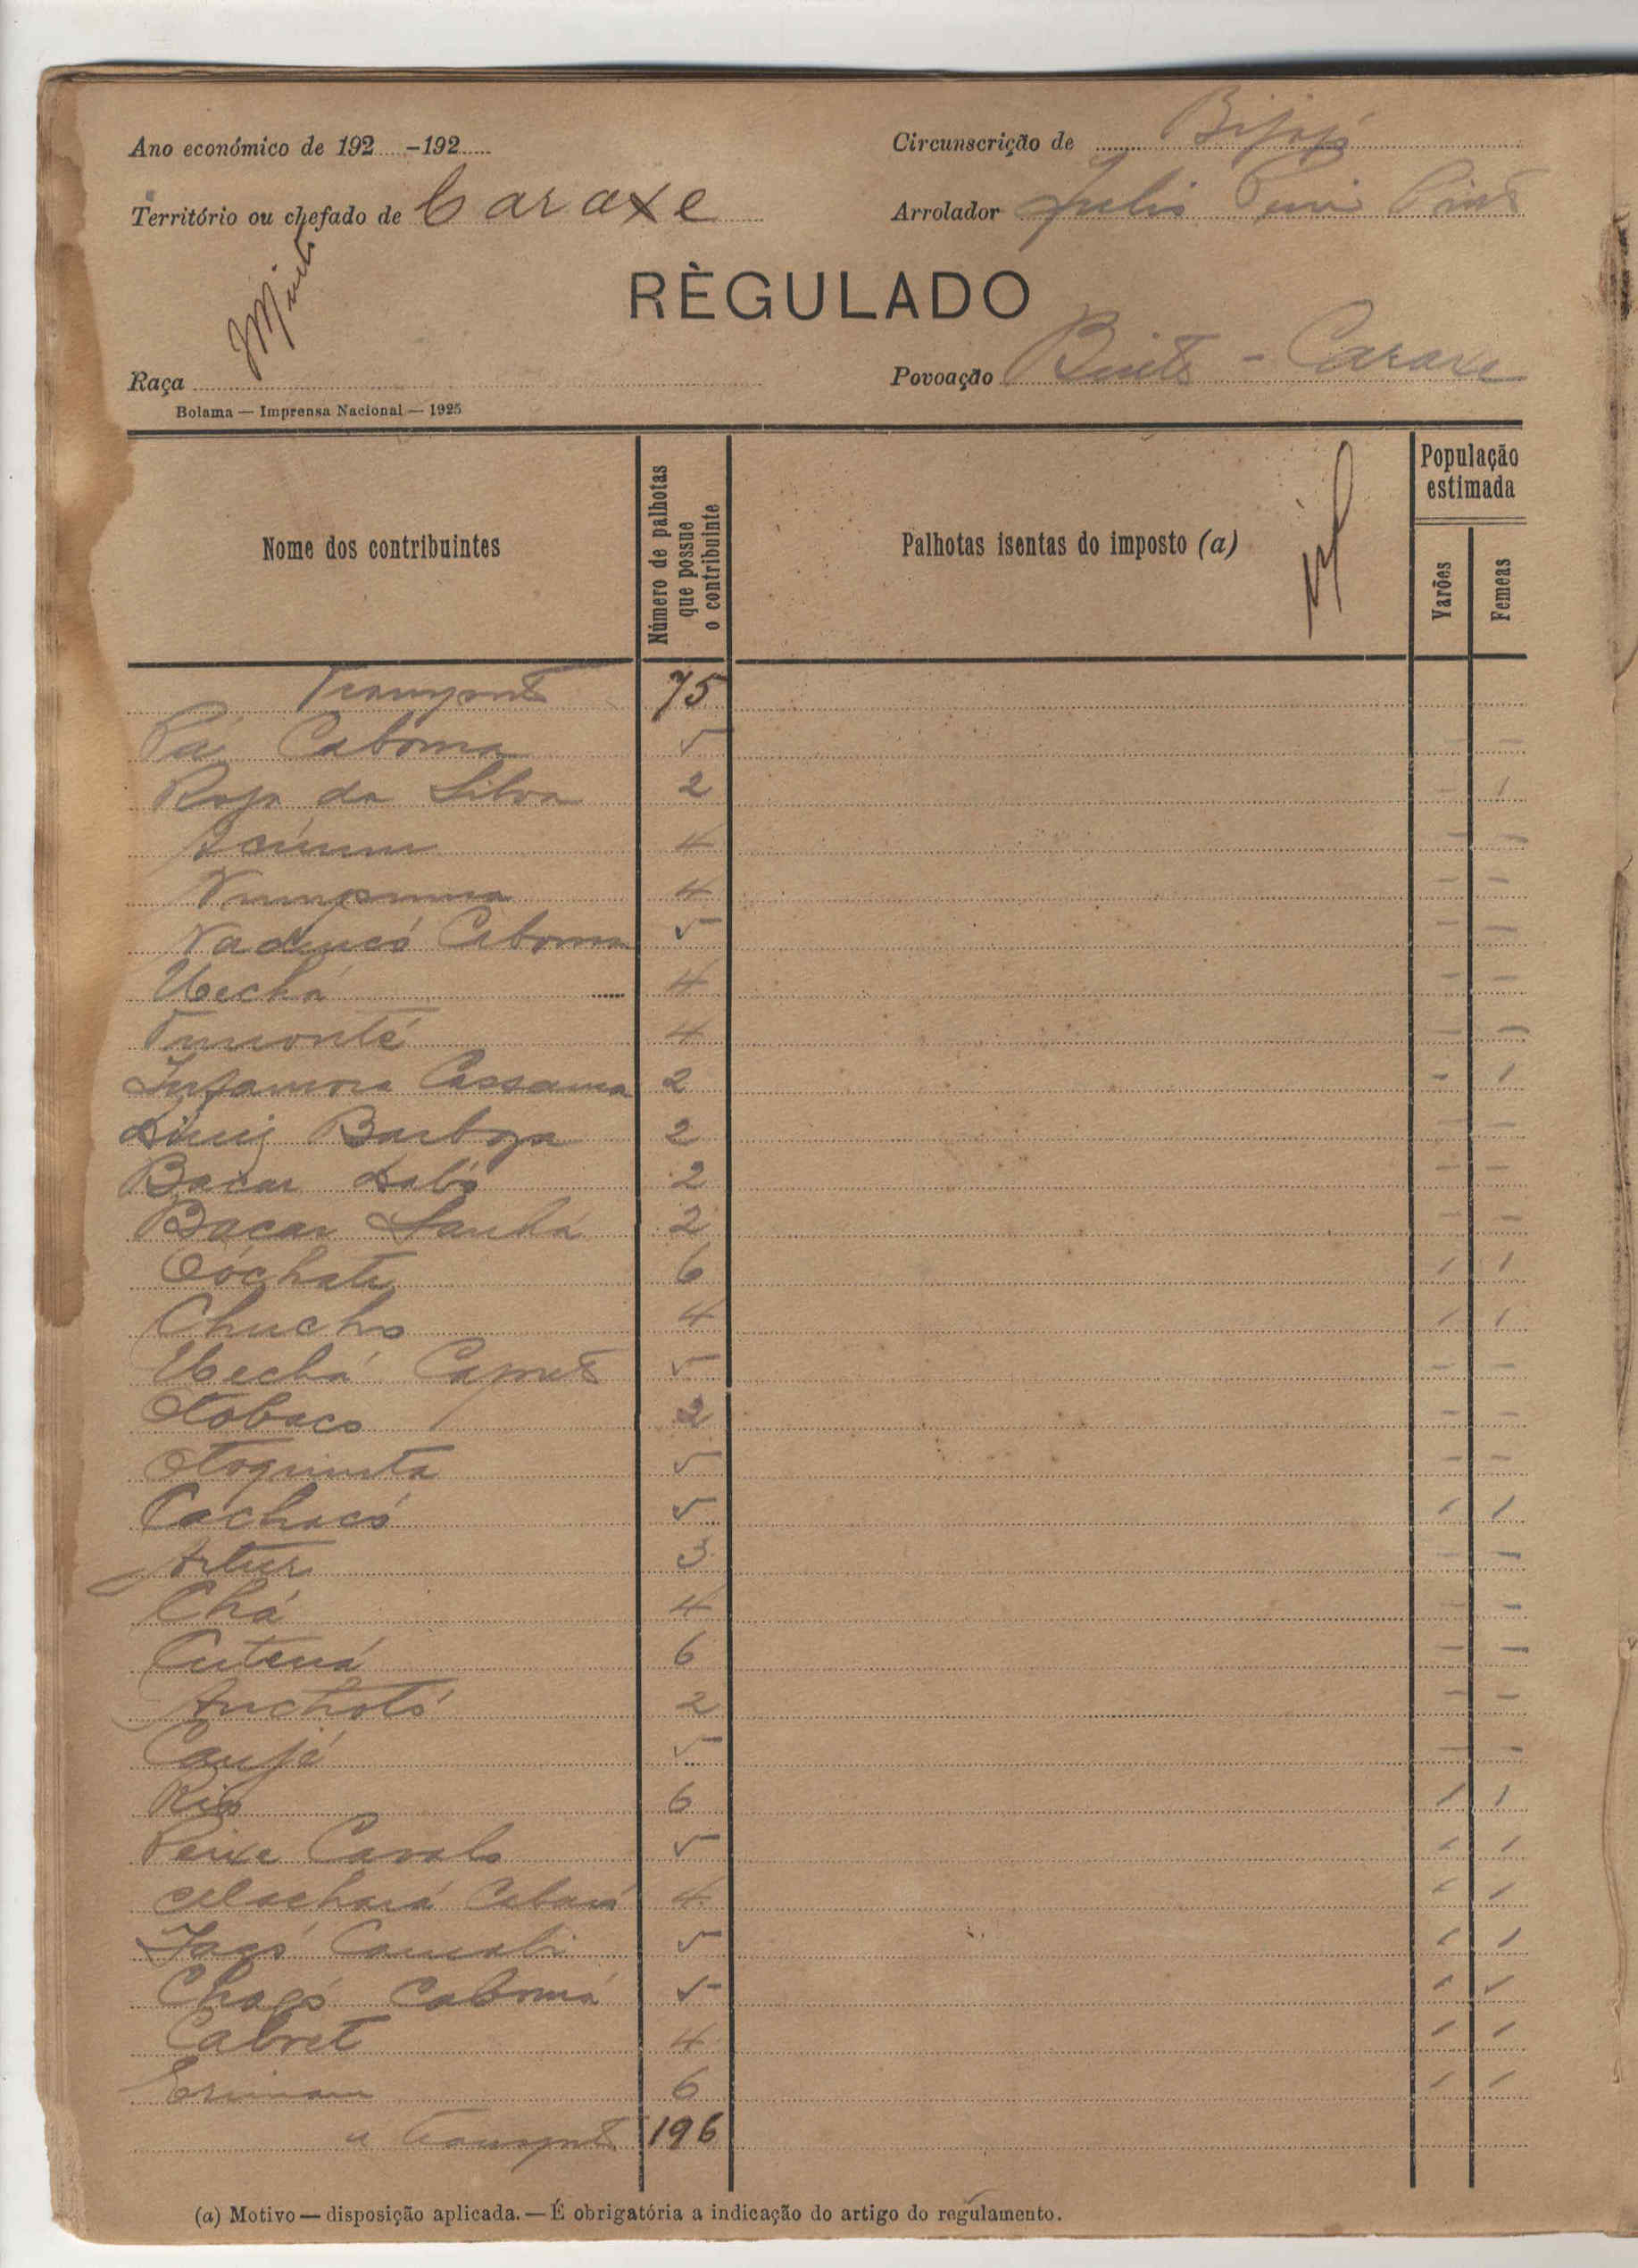 Ano económico de 192 -192
Circunscrição de Bijojó
Território ou chefado de Caraxe
Arrolador Julio Pinto
RÈGULADO
Raça
Povoação Binte - Caraxe
Bolama — Imprensa Nacional — 1925
Nome dos contribuintes
Número de palhotas que possue o contribuinte
Palhotas isentas do imposto (a)
População estimada
Varões
Femeas
Transporte 75
Pá Caboma 5
Rosa da Silva 2 - 1
4 - -
4 - -
Caboma 5 - -
Uechá 4 - -
4 - -
Infamora Cassama 2 - 1
Diniz Barboza 2 - -
Bacar Dabó 2 - -
Bacar Sanhá 2 - -
Cóchate 6 1 1
Chucho 4 1 1
Uechá 5 - -
Otobaco 2 - -
Otoquinta 5 - -
Cachacó 5 1 1
Artur 3 - -
Chá 4 - -
Cutená 6 - -
Anchotó 2 - -
Canjá 5 - -
Rio 6 1 1
Peixe Cavalo 5 1 1
4 1 1
Jagó 5 1 1
Chagó Cabomá 5 1 1
Cabret 4 1 1
6 1 1
a Transporte 196
(a) Motivo — disposição aplicada. — É obrigatória a indicação do artigo do regulamento.